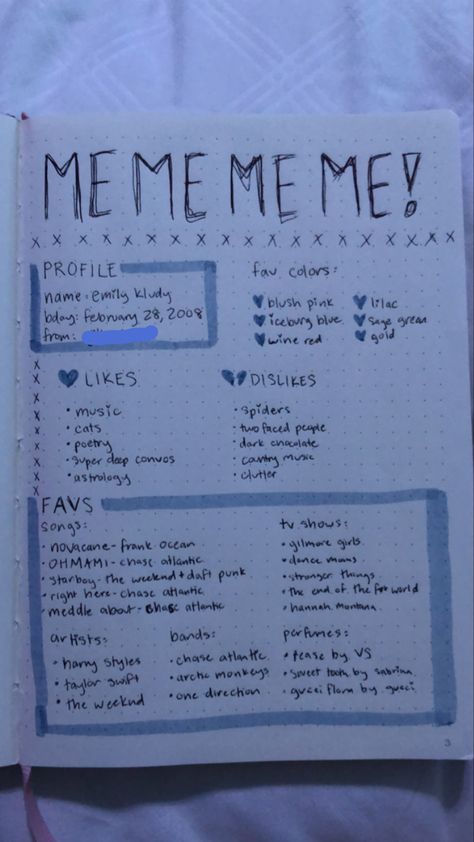 ME ME ME ME!
x x x x x x x x x x x x x x x x x x x x x x x
PROFILE
name: emily kludy
bday: february 28, 2008
from:
fav colors:
blush pink
iceburg blue
wine red
lilac
sage green
gold
LIKES
• music
• cats
• poetry
• super deep convos
• astrology
DISLIKES
• spiders
• two faced people
• dark chocolate
• country music
• clutter
FAVS
songs:
• novacane - frank ocean
• OHMAMI - chase atlantic
• starboy - the weeknd + daft punk
• right here - chase atlantic
• meddle about - chase atlantic
tv shows:
• gilmore girls
• dance moms
• stranger things
• the end of the f world
• hannah montana
artists:
• harry styles
• taylor swift
• the weeknd
bands:
• chase atlantic
• arctic monkeys
• one direction
perfumes:
• tease by VS
• sweet tooth by sabrina
• gucci flora by gucci
3